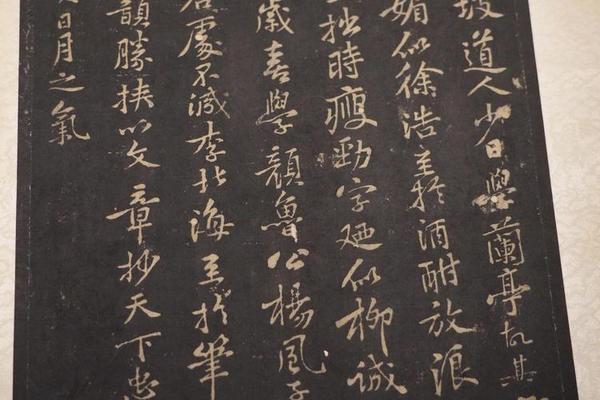 坡道人少日學蘭亭故其
媚似徐浩至於酒酣放浪
拙時瘦勁字廼似柳誠
歲喜學顏魯公楊風子
處不減李北海至於筆
韻勝挾以文章妙天下忠
日月之氣